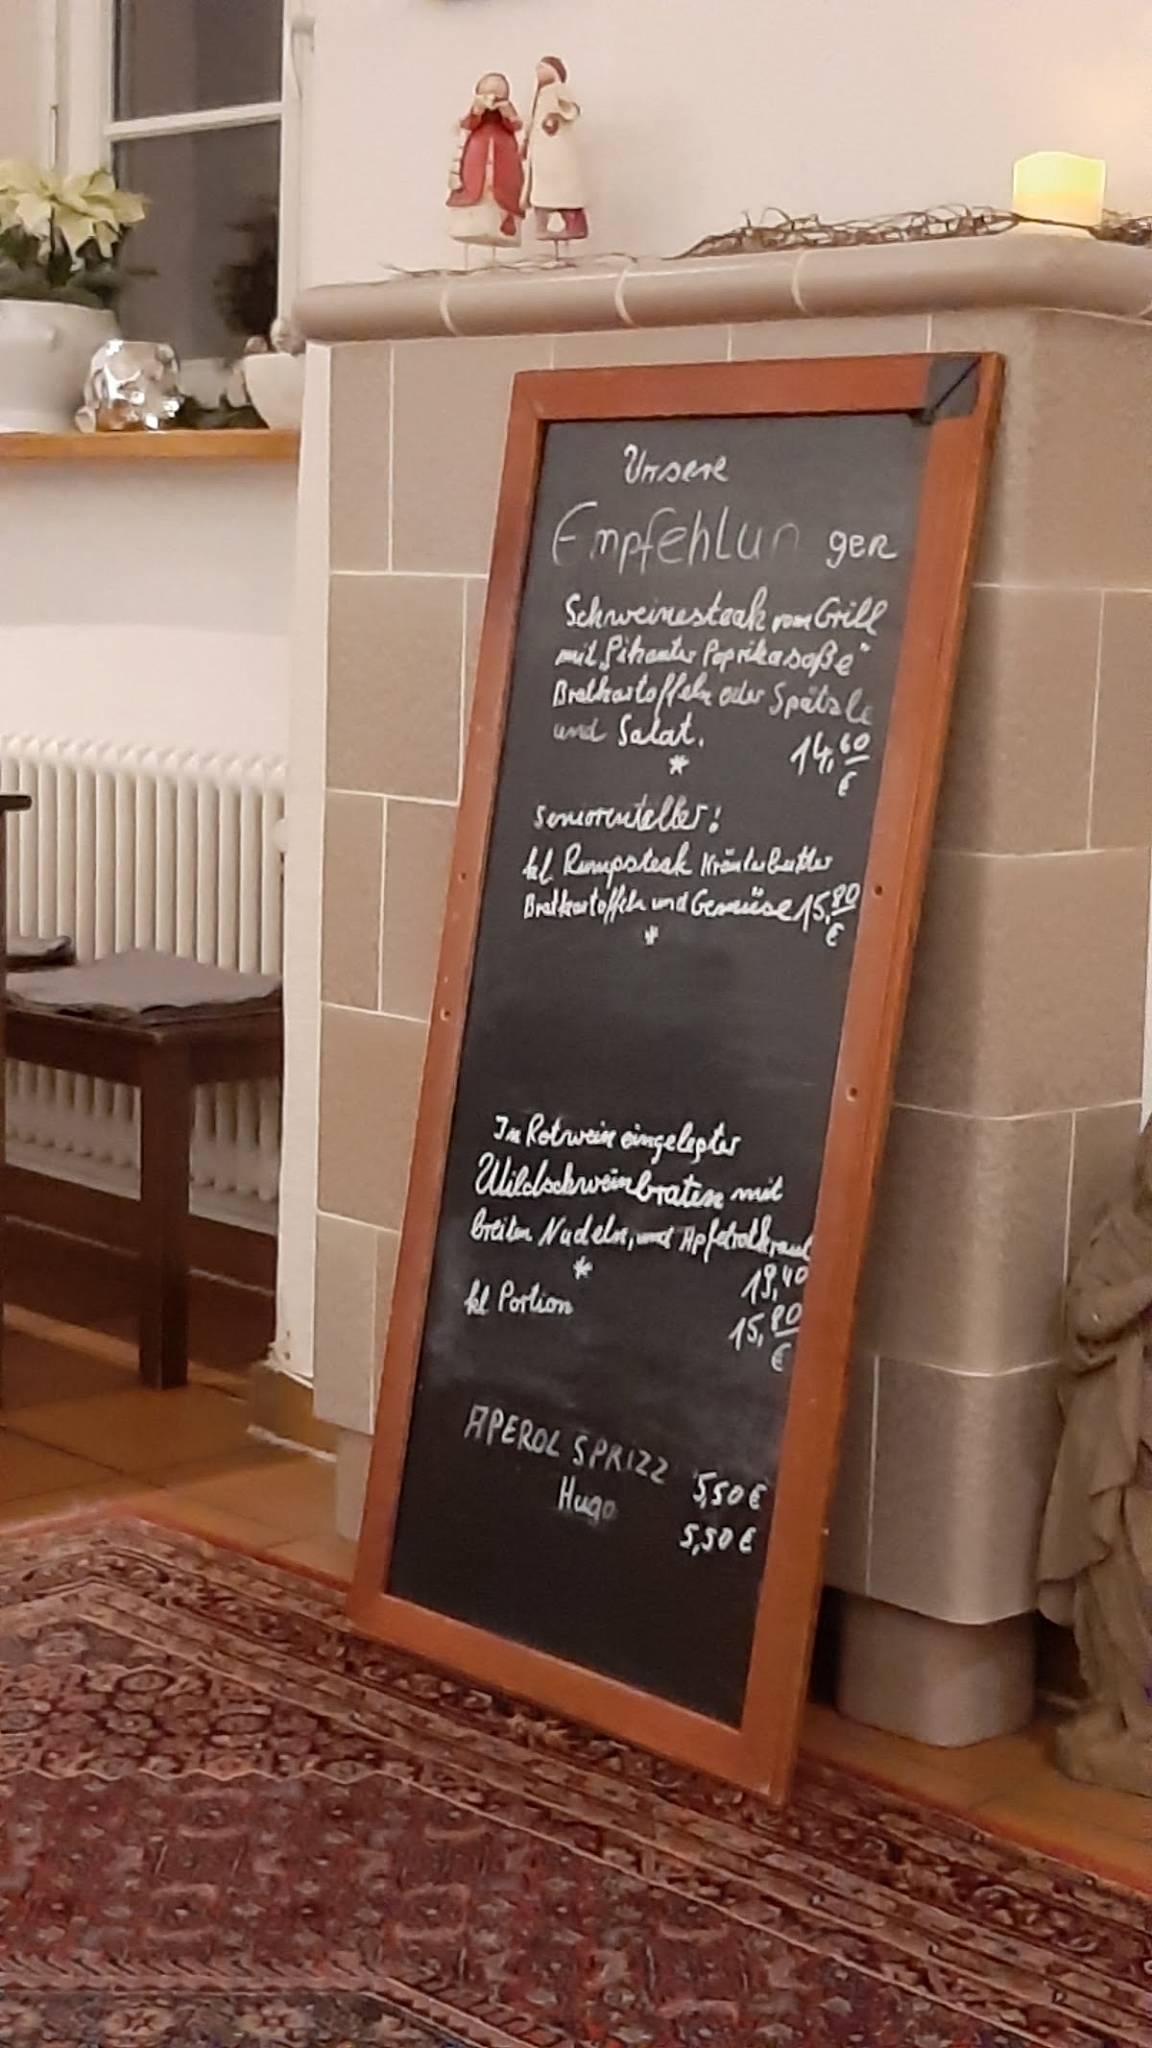 Unsere
Empfehlungen
Schweinesteak vom Grill
mit „Pikanter Paprikasoße"
Bratkartoffeln oder Spätzle
und Salat. 14,60 €
*
Seniorenteller!
kl. Rumpsteak Kräuterbutter
Bratkartoffeln und Gemüse 15,80 €
*
In Rotwein eingelegter
Wildschweinbraten mit
breiten Nudeln, und Apfelrotkraut
* 19,40
kl Portion 15,80 €
APEROL SPRIZZ 5,50 €
Hugo 5,50 €